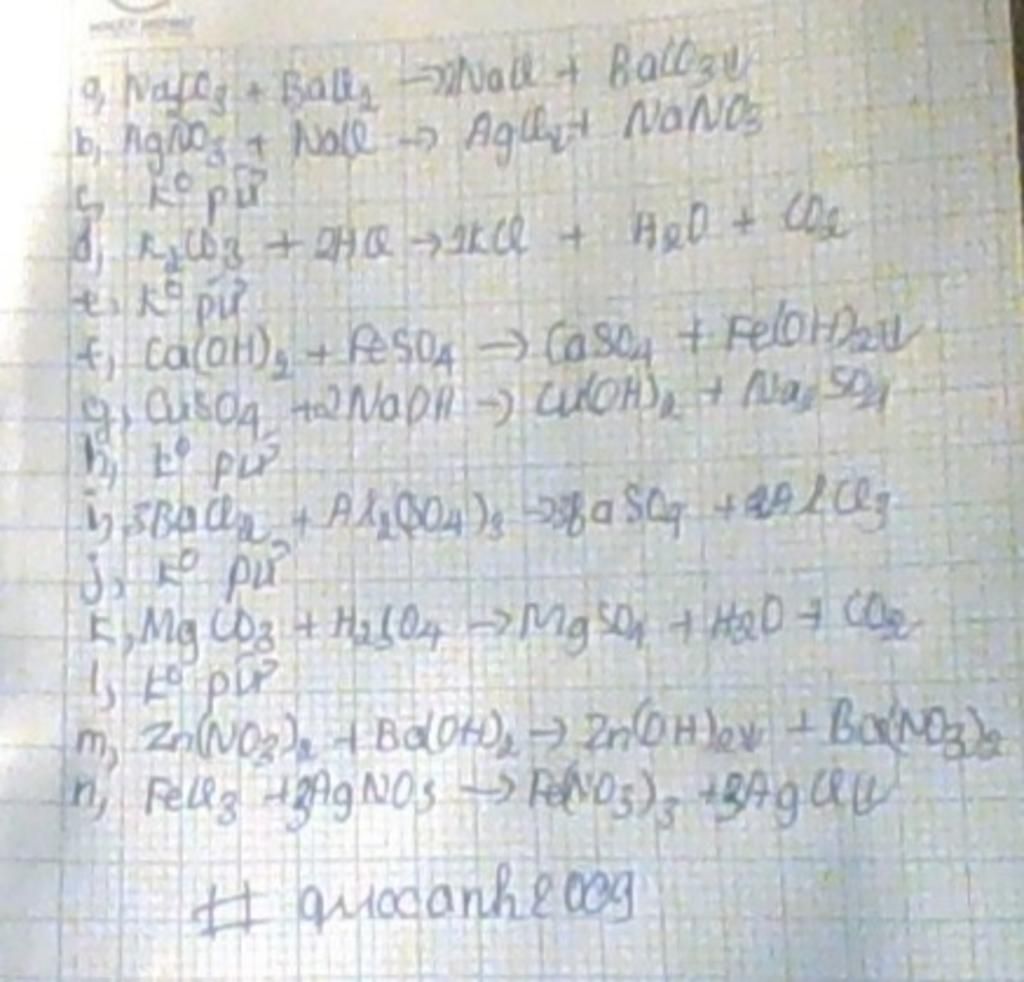 a, Na2CO3 + BaCl2 → 2NaCl + BaCO3↓
b, AgNO3 + NaCl → AgCl↓ + NaNO3
c, k° pứ
d, K2CO3 + 2HCl → 2KCl + H2O + CO2
e, k° pứ
f, Ca(OH)2 + FeSO4 → CaSO4 + Fe(OH)2↓
g, CuSO4 + 2NaOH → Cu(OH)2 + Na2SO4
h, k° pứ
i, 3BaCl2 + Al2(SO4)3 → 3BaSO4 + 2AlCl3
j, k° pứ
k, MgCO3 + H2SO4 → MgSO4 + H2O + CO2
l, k° pứ
m, Zn(NO3)2 + Ba(OH)2 → Zn(OH)2↓ + Ba(NO3)2
n, FeCl3 + 3AgNO3 → Fe(NO3)3 + 3AgCl↓
# quocanh2009